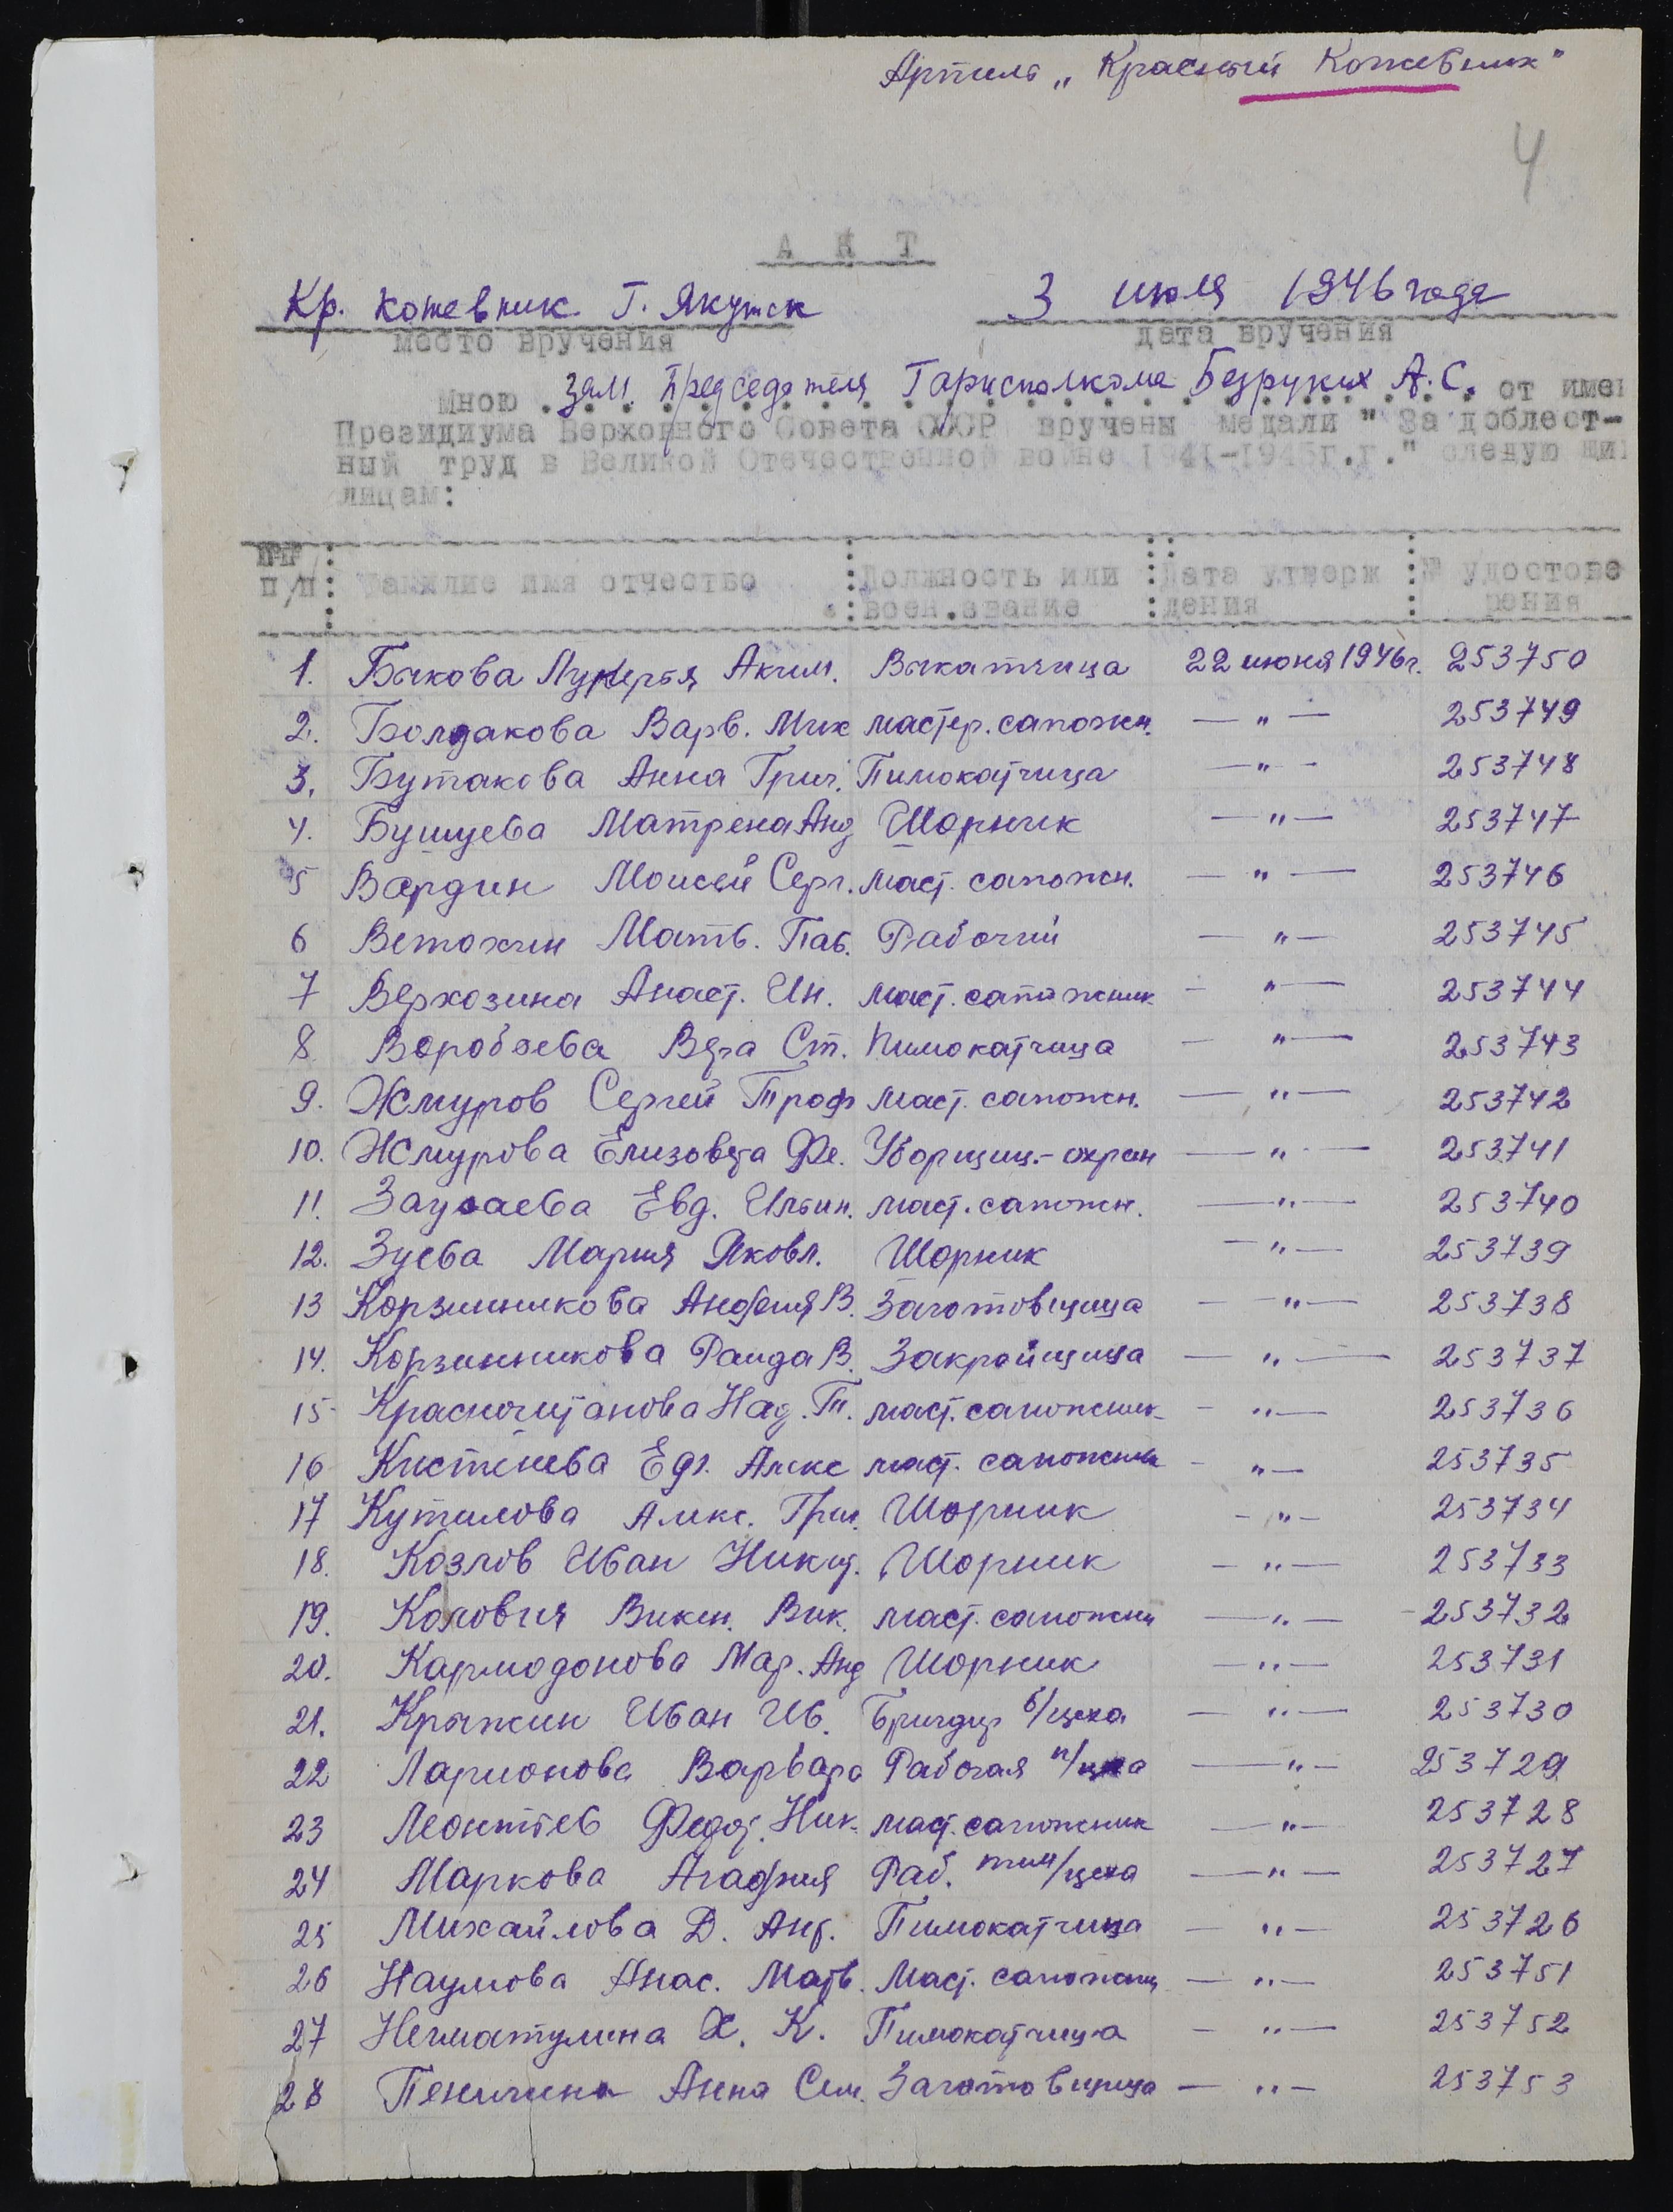 Артель „Красный Кожевник"
4
АКТ
Кр. кожевник Г. Якутск 3 июля 1946 года
место вручения дата вручения
Мною зам. Председателя Горисполкома Безруких А.С. от имен
Президиума Верховного Совета СССР вручены медали "За доблест-
ный труд в Великой Отечественной войне 1941-1945г.г." следующи
лицам:
№№ п/п Фамилие имя отчество Должность или воен.звание Дата утверждения № удостоверения
1. Быкова Лукерья Аким. Выкатчица 22 июня 1946г. 253750
2. Болдакова Варв. Мих мастер. сапожн. — " — 253749
3. Бутакова Анна Григ. Пимокатчица — " — 253748
4. Бушуева Матрена Анд Шорник — " — 253747
5 Вардин Моисей Серг. маст. сапожн. — " — 253746
6 Ветохин Матв. Пав. Рабочий — " — 253745
7 Верхозина Анаст. Ин. маст. сапожник — " — 253744
8. Воробьева Вера Ст. Пимокатчица — " — 253743
9. Жмуров Сергей Троф маст. сапожн. — " — 253742
10. Жмурова Елизовета Фе. Уборщиц.-охран — " — 253741
11. Евд. Ильин. маст. сапожн. — " — 253740
12. Зуева Мария Яковл. Шорник — " — 253739
13 Корзинникова Анфеия В. Заготовщица — " — 253738
14. Корзинникова Раида В. Закройщица — " — 253737
15 Красноштанова Над. Т. маст. сапожник — " — 253736
16 Кистенева Алекс маст. сапожник — " — 253735
17 Кутилова Алекс. Григ. Шорник — " — 253734
18. Козлов Иван Никит. Шорник — " — 253733
19. Викен. Вик. маст. сапожни — " — 253732
20. Кармодонова Мар. Анд Шорник — " — 253731
21. Кряжин Иван Ив. Бригадир б/цеха — " — 253730
22 Ларионова Варвара Рабочая п/цеха — " — 253729
23 Леонтьев Федот. Ник. маст. сапожник — " — 253728
24 Маркова Агафия Раб. пим/цеха — " — 253727
25 Михайлова Д. Анд. Пимокатчица — " — 253726
26 Наумова Анас. Матв. Маст. сапожни — " — 253751
27 Негматулина Х. К. Пимокатчица — " — 253752
28 Анна Сем. Заготовщица — " — 253753